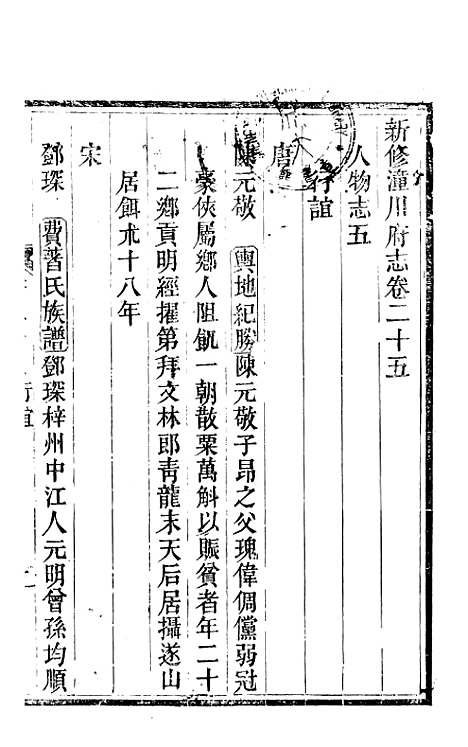 新修潼川府志卷二十五
人物志五
行誼
唐
陳元敬　輿地紀勝陳元敬子昂之父瑰偉倜儻弱冠
豪俠屬鄉人阻飢一朝散粟萬斛以賑貧者年二十
二鄉貢明經擢第拜文林郎靑龍末天后居攝遂山
居餌朮十八年
宋
鄧琛　費著氏族譜鄧琛梓州中江人元明曾孫均順
行誼